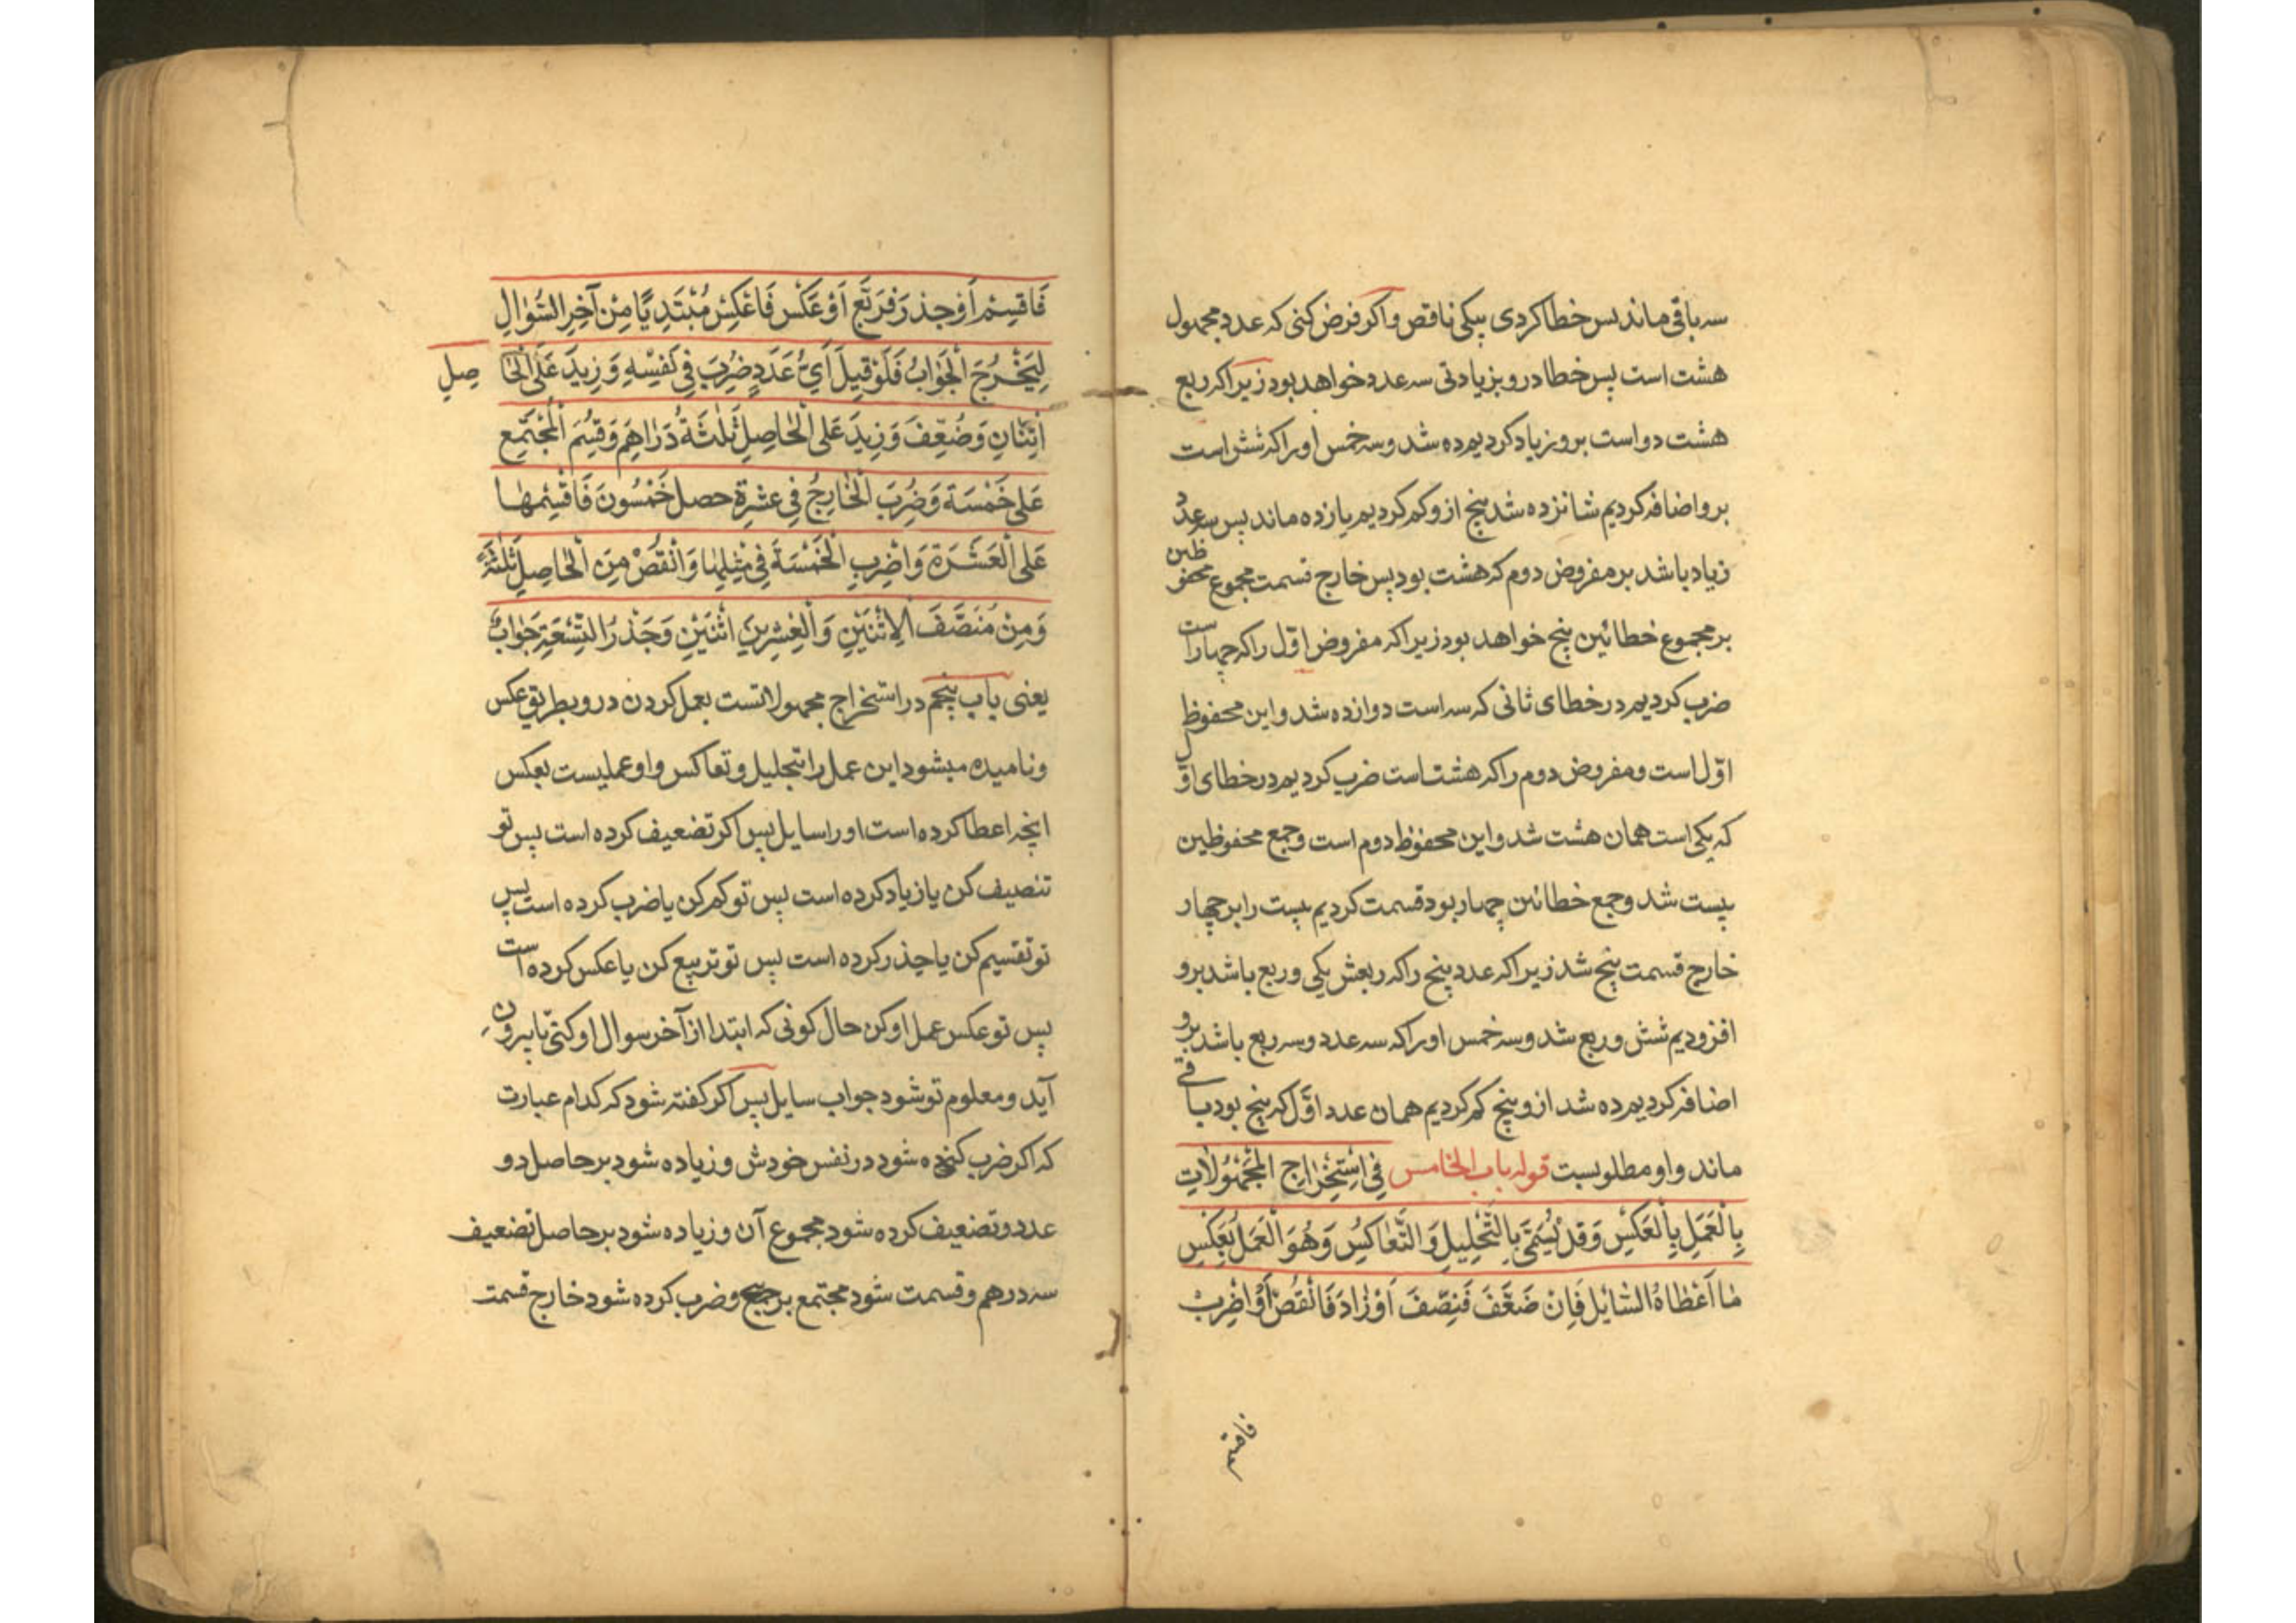 سه باقی ماند پس خطا کردی بیکی ناقص و اکر فرض کنی که عدد مجهول
هشت است پس خطا در و بزیادتی سه عدد خواهد بود زیرا که ربع
هشت دو است برو زیاد کردیم ده شد و سه خمس او را که شش است
برو اضافه کردیم شانزده شد پنج ازو کم کردیم یازده ماند پس سه عدد
زیاد باشد بر مفروض دوم که هشت بود پس خارج قسمت مجموع محفوظین
بر مجموع خطائین پنج خواهد بود زیرا که مفروض اوّل را که چهار است
ضرب کردیم در خطای ثانی که سه است دوازده شد و این محفوظ
اوّل است و مفروض دوم را که هشت است ضرب کردیم در خطای اوّل
که یکی است همان هشت شد و این محفوظ دوم است و جمع محفوظین
بیست شد و جمع خطائین چهار بود قسمت کردیم بیست را بر چهار
خارج قسمت پنج شد زیرا که عدد پنج را که ربعش یکی و ربع باشد برو
افزودیم شش و ربع شد و سه خمس او را که سه عدد و سه ربع باشد برو
اضافه کردیم ده شد ازو پنج کم کردیم همان عدد اوّل که پنج بود باقی
ماند و او مطلوبست قوله باب الخامس فِی اسْتِخْرٰاجِ الْمَجْهُوُلٰاتِ
بِالْعَمَلِ بِالْعَكْسِ وَقَدْ يُسَمّٰى بِالتَّحْلِيلِ وَالتَّعٰاكُسِ وَهُوَ الْعَمَلُ بِعَكْسِ
مٰا اَعْطٰاهُ السّٰايِل فَاِنْ ضَعَّفَ فَنَصِّفَ اَوْ زٰادَ فَانْقُصْ اَوْ اضْرِبْ
فَاقسِمْ اَوْ جذَرَ فَرَبِّع اَوْ عَكَسَ فَاعْكِسْ مُبْتَدِيًا مِنْ آخِرِ السُّؤٰالِ
لِيَخْرُجَ الْجَوٰابُ فَلَوْ قيِلَ اَىُّ عَدَدٍ ضُرِبَ فِى نَفْسِهِ وَ زِيدَ عَلَى الْحٰاصِلِ
اثِنْٰانِ وَ ضُعِّفَ وَ زِيدَ عَلَى الْحٰاصِلِ ثَلٰثَةُ دَرٰاهِمَ وَ قُسِمَ الْمُجْتَمِع
عَلٰى خَمْسَة وَ ضُرِبَ الْخٰارِجُ فِى عشرةٍ حصل خَمْسُونَ فَاقْسِمْهٰا
عَلَى الْعَشَرَةِ وَ اضْرِبِ الْخَمْسَةَ فِى مِثْلِهٰا وَ انْقُصْ مِنَ الْحٰاصِلِ ثَلٰثَةً
وَ مِنْ مُنَصَّفَ الِاثْنَيْنِ وَ الْعِشْرِينَ اثْنَيْنِ وَ جَذْرُ التِّسْعَةِ جَوٰابٌ
یعنی باب پنجم در استخراج مجهولاتست بعمل کردن در و بطریق عکس
و نامیده میشود این عمل را بتحلیل و تعاکس و او عملیست بعکس
انچه اعطا کرده است او را سایل پس اکر تضعیف کرده است پس تو
تنصیف کن یا زیاد کرده است پس تو کم کن یا ضرب کرده است پس
تو تقسیم کن یا جذر کرده است پس تو تربیع کن یا عکس کرده است
پس تو عکس عمل او کن حال کونی که ابتدا از آخر سوال او کنی تا بیرون
آید و معلوم تو شود جواب سایل پس اکر کفته شود که کدام عبارت
که اکر ضرب کرده شود در نفس خودش و زیاده شود بر حاصل دو
عدد و تضعیف کرده شود مجموع آن و زیاده شود بر حاصل تضعیف
سه درهم و قسمت شود مجتمع بر پنج و ضرب کرده شود خارج قسمت